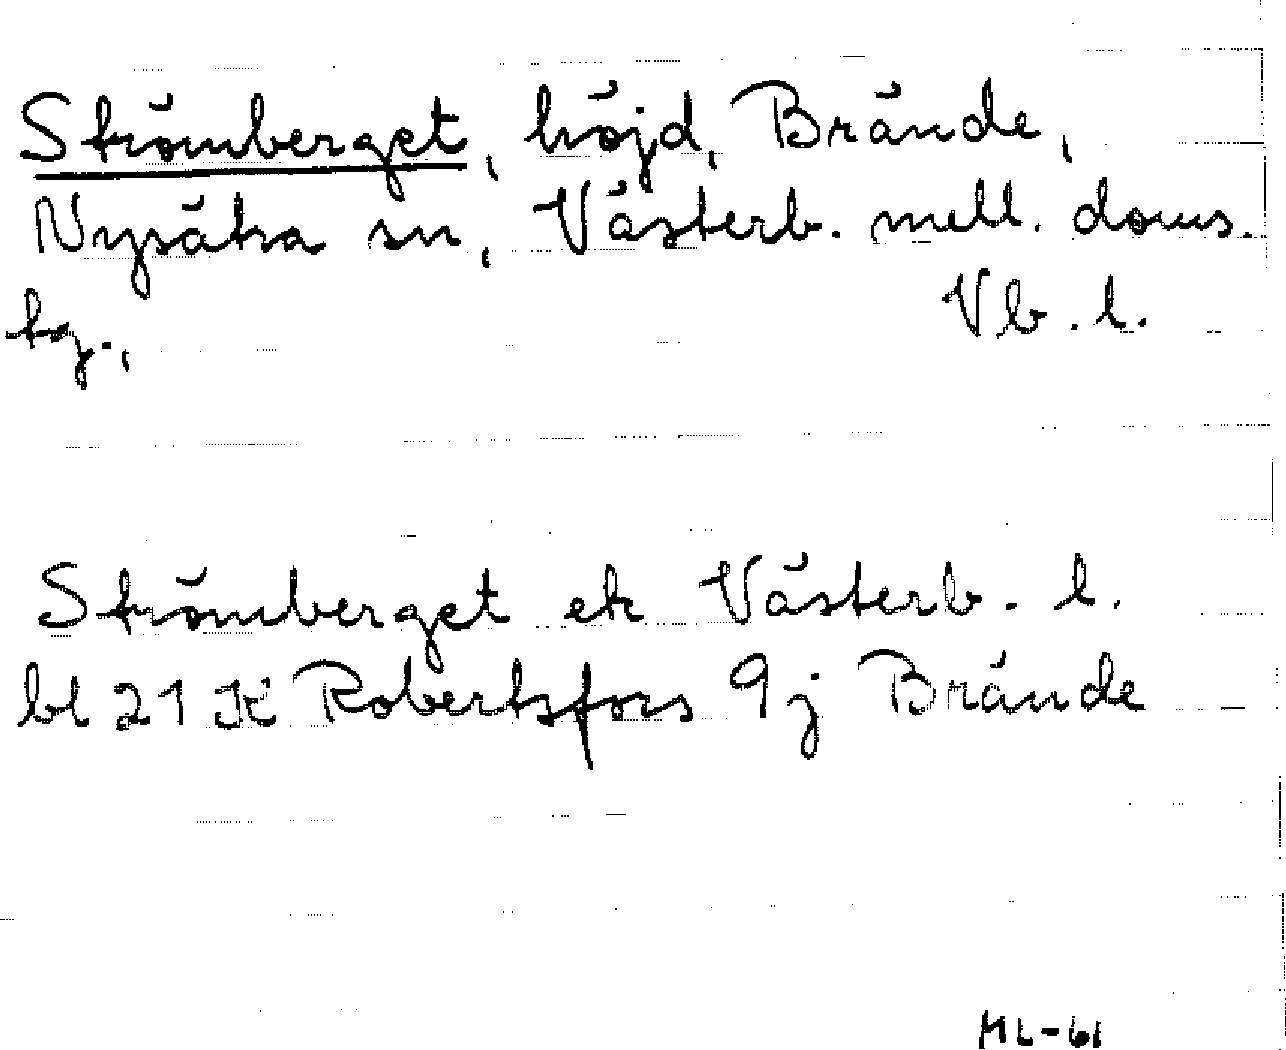 Strömberget, höjd, Brände,
Nysätra sn, Västerb. mell. doms.
tg., Vb. l.
Strömberget ek Västerb. l.
bl 21 K Robertsfors 9j Brände
ML-61